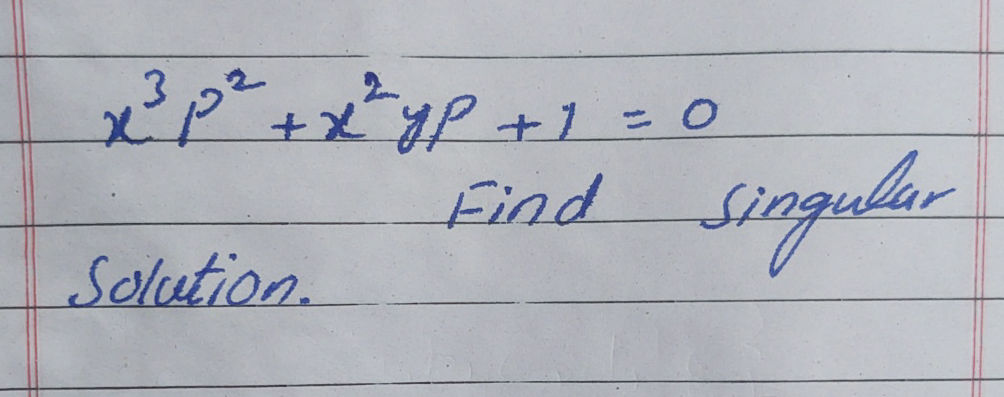 x³p² + x²yp + 1 = 0
Find singular
Solution.